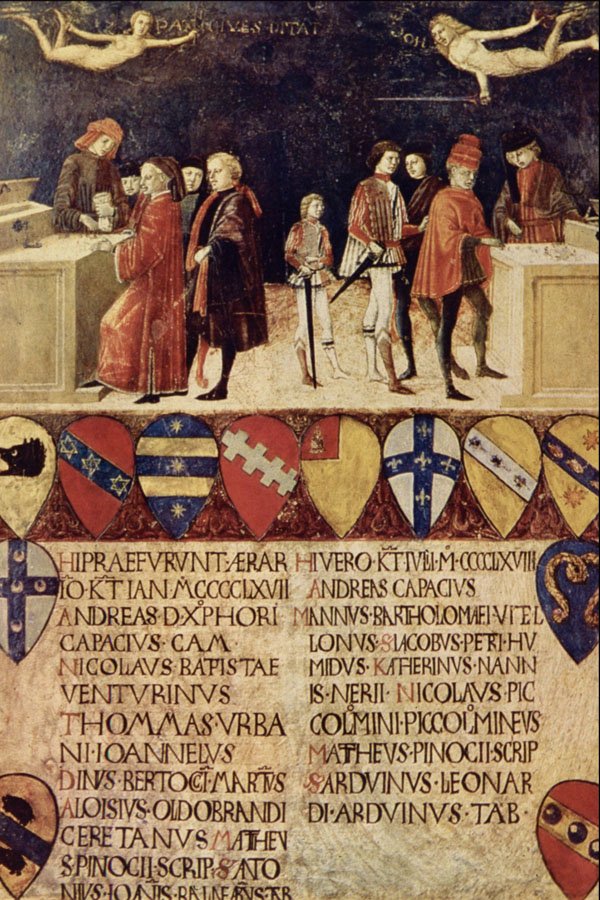 PAX CIVES DITAT
HI PRAEFVRVNT ÆRAR
IO · KT IAN · M̊CCCCCLXVII
ANDREAS D XPHORI
CAPACIVS · CAM ·
NICOLAVS BATISTAE
VENTVRINVS
THOMMAS · VRBA
NI · IOANNELVS
DINVS · BERTOCCI · MARTIVS
ALOISIVS · OLDOBRANDI
CERETANVS MATHEV
S · PINOCII · SCRIP · S · ATO
NIVS · IOANIS
HI VERO · KT IVLI · M̊ · CCCCCLXVIII
ANDREAS CAPACIVS
MANNVS · BARTHOLOMAEI · VITEL
LONVS · S IACOBVS · PETRI · HV
MIDVS · KATHERINVS · NANN
IS · NERII · NICOLAVS · PIC
COLOMINI · PICCOLOMINEVS
MATHEVS · PINOCII · SCRIP
S · ARDVINVS · LEONAR
DI · ARDVINVS · TAB ·